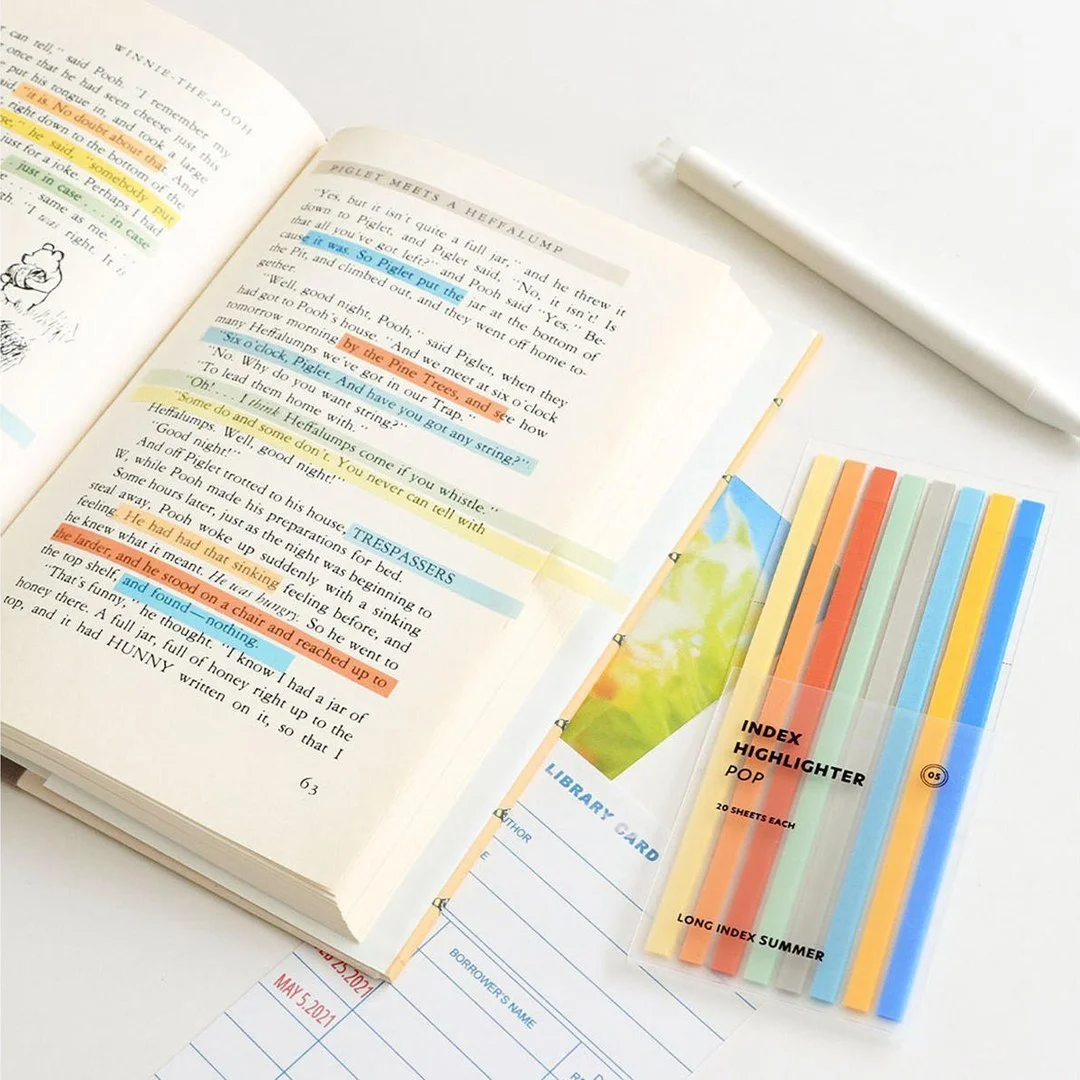 WINNIE-THE-POOH
can tell," said Pooh. "I remember my
once that he had seen cheese just this
put his tongue in, and took a large
"it is. No doubt about that. And
right down to the bottom of the
he said, "somebody put
just for a joke. Perhaps I had
just in case . . . in case
. . . same as me. . .
"I was right. It is
PIGLET MEETS A HEFFALUMP
"Yes, but it isn't quite a full jar," and he threw it
down to Piglet, and Piglet said, "No, it isn't! Is
that all you've got left?" and Pooh said "Yes." Be-
cause it was. So Piglet put the jar at the bottom of
the Pit, and climbed out, and they went off home to-
gether.
"Well, good night, Pooh," said Piglet, when they
had got to Pooh's house. "And we meet at six o'clock
tomorrow morning by the Pine Trees, and see how
many Heffalumps we've got in our Trap."
"Six o'clock, Piglet. And have you got any string?"
"No. Why do you want string?"
"To lead them home with."
"Oh! . . . I think Heffalumps come if you whistle."
"Some do and some don't. You never can tell with
Heffalumps. Well, good night!"
"Good night!"
And off Piglet trotted to his house TRESPASSERS
W, while Pooh made his preparations for bed.
Some hours later, just as the night was beginning to
steal away, Pooh woke up suddenly with a sinking
feeling. He had had that sinking feeling before, and
he knew what it meant. He was hungry. So he went to
the larder, and he stood on a chair and reached up to
the top shelf, and found—nothing.
"That's funny," he thought. "I know I had a jar of
honey there. A full jar, full of honey right up to the
top, and it had HUNNY written on it, so that I
63
LIBRARY CARD
BORROWER'S NAME
25.2021
MAY 5.2021
INDEX
HIGHLIGHTER
POP
05
20 SHEETS EACH
LONG INDEX SUMMER